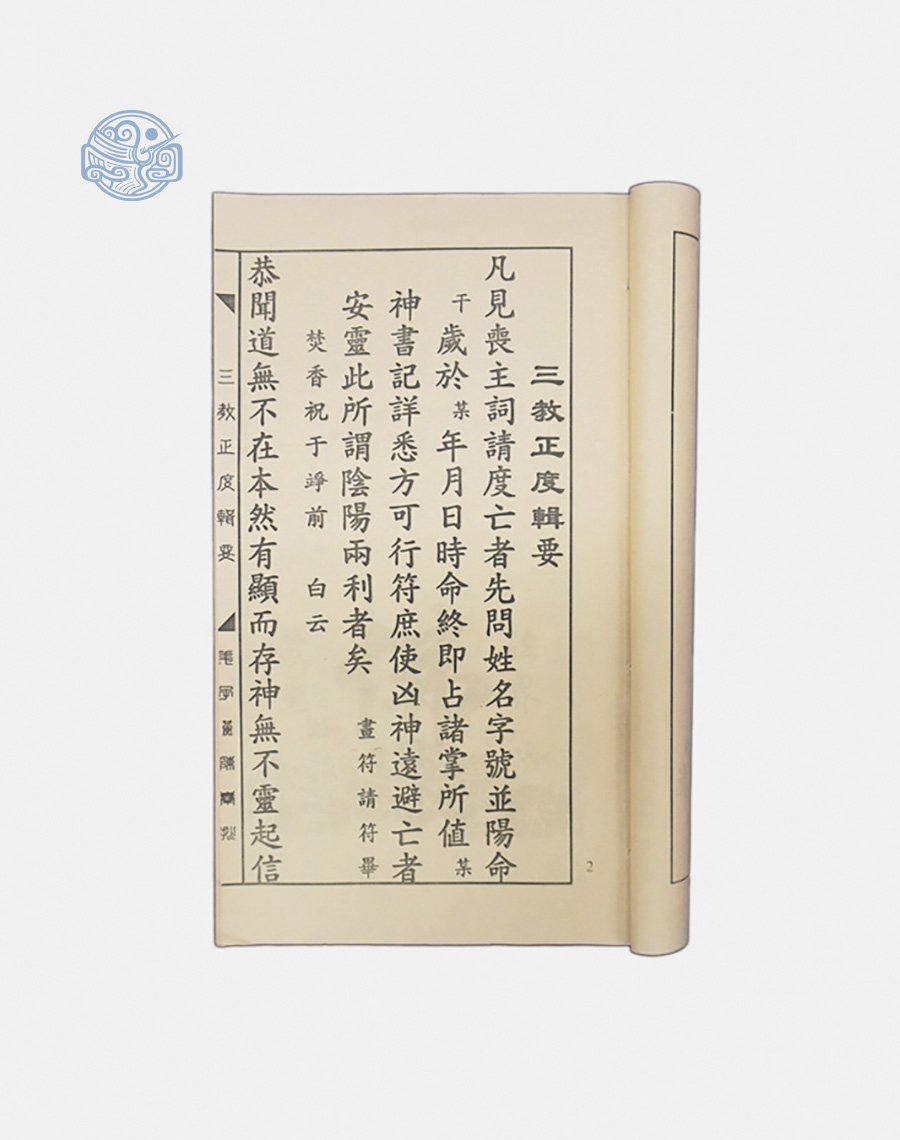 三教正度輯要
凡見喪主詞請度亡者先問姓名字號並陽命
干歲於某年月日時命終即占諸掌所值某
神書記詳悉方可行符庶使凶神遠避亡者
安靈此所謂陰陽兩利者矣 畫符請符畢
焚香祝于竫前 白云
恭聞道無不在本然有顯而存神無不靈起信
三教正度輯要
2